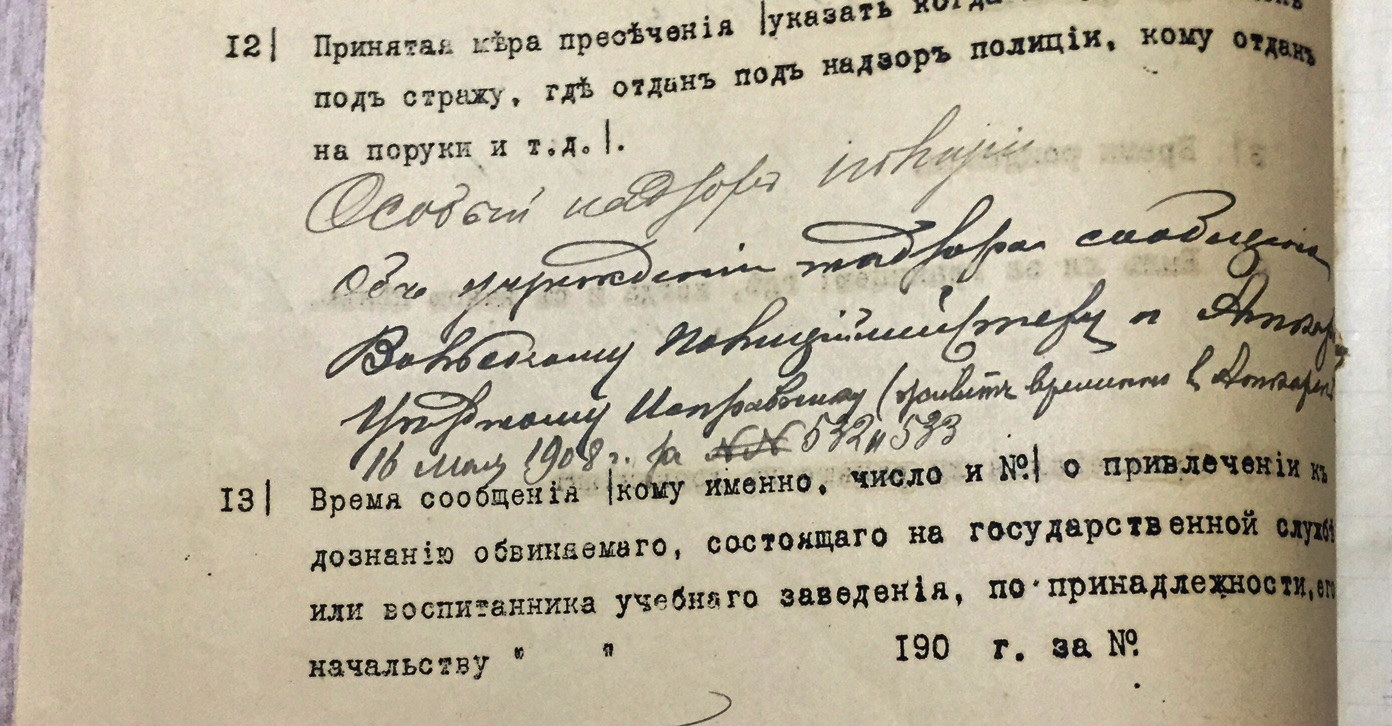 I2| Принятая мѣра пресѣченія |указать когда
подъ стражу, гдѣ отданъ подъ надзоръ полиціи, кому отданъ
на поруки и т.д.|.
Особый надзоръ полиціи
Объ учрежденіи надзора сообщено
Вольскому Полиційместеру и Аткар
Уѣздному Исправнику (живетъ временно в Аткарскѣ
16 мая 1908 г. за №№ 532 и 533
I3| Время сообщенія |кому именно, число и №| о привлеченіи къ
дознанію обвиняемаго, состоящаго на государственной службѣ
или воспитанника учебнаго заведенія, по принадлежности, его
начальству " " I90 г. за №